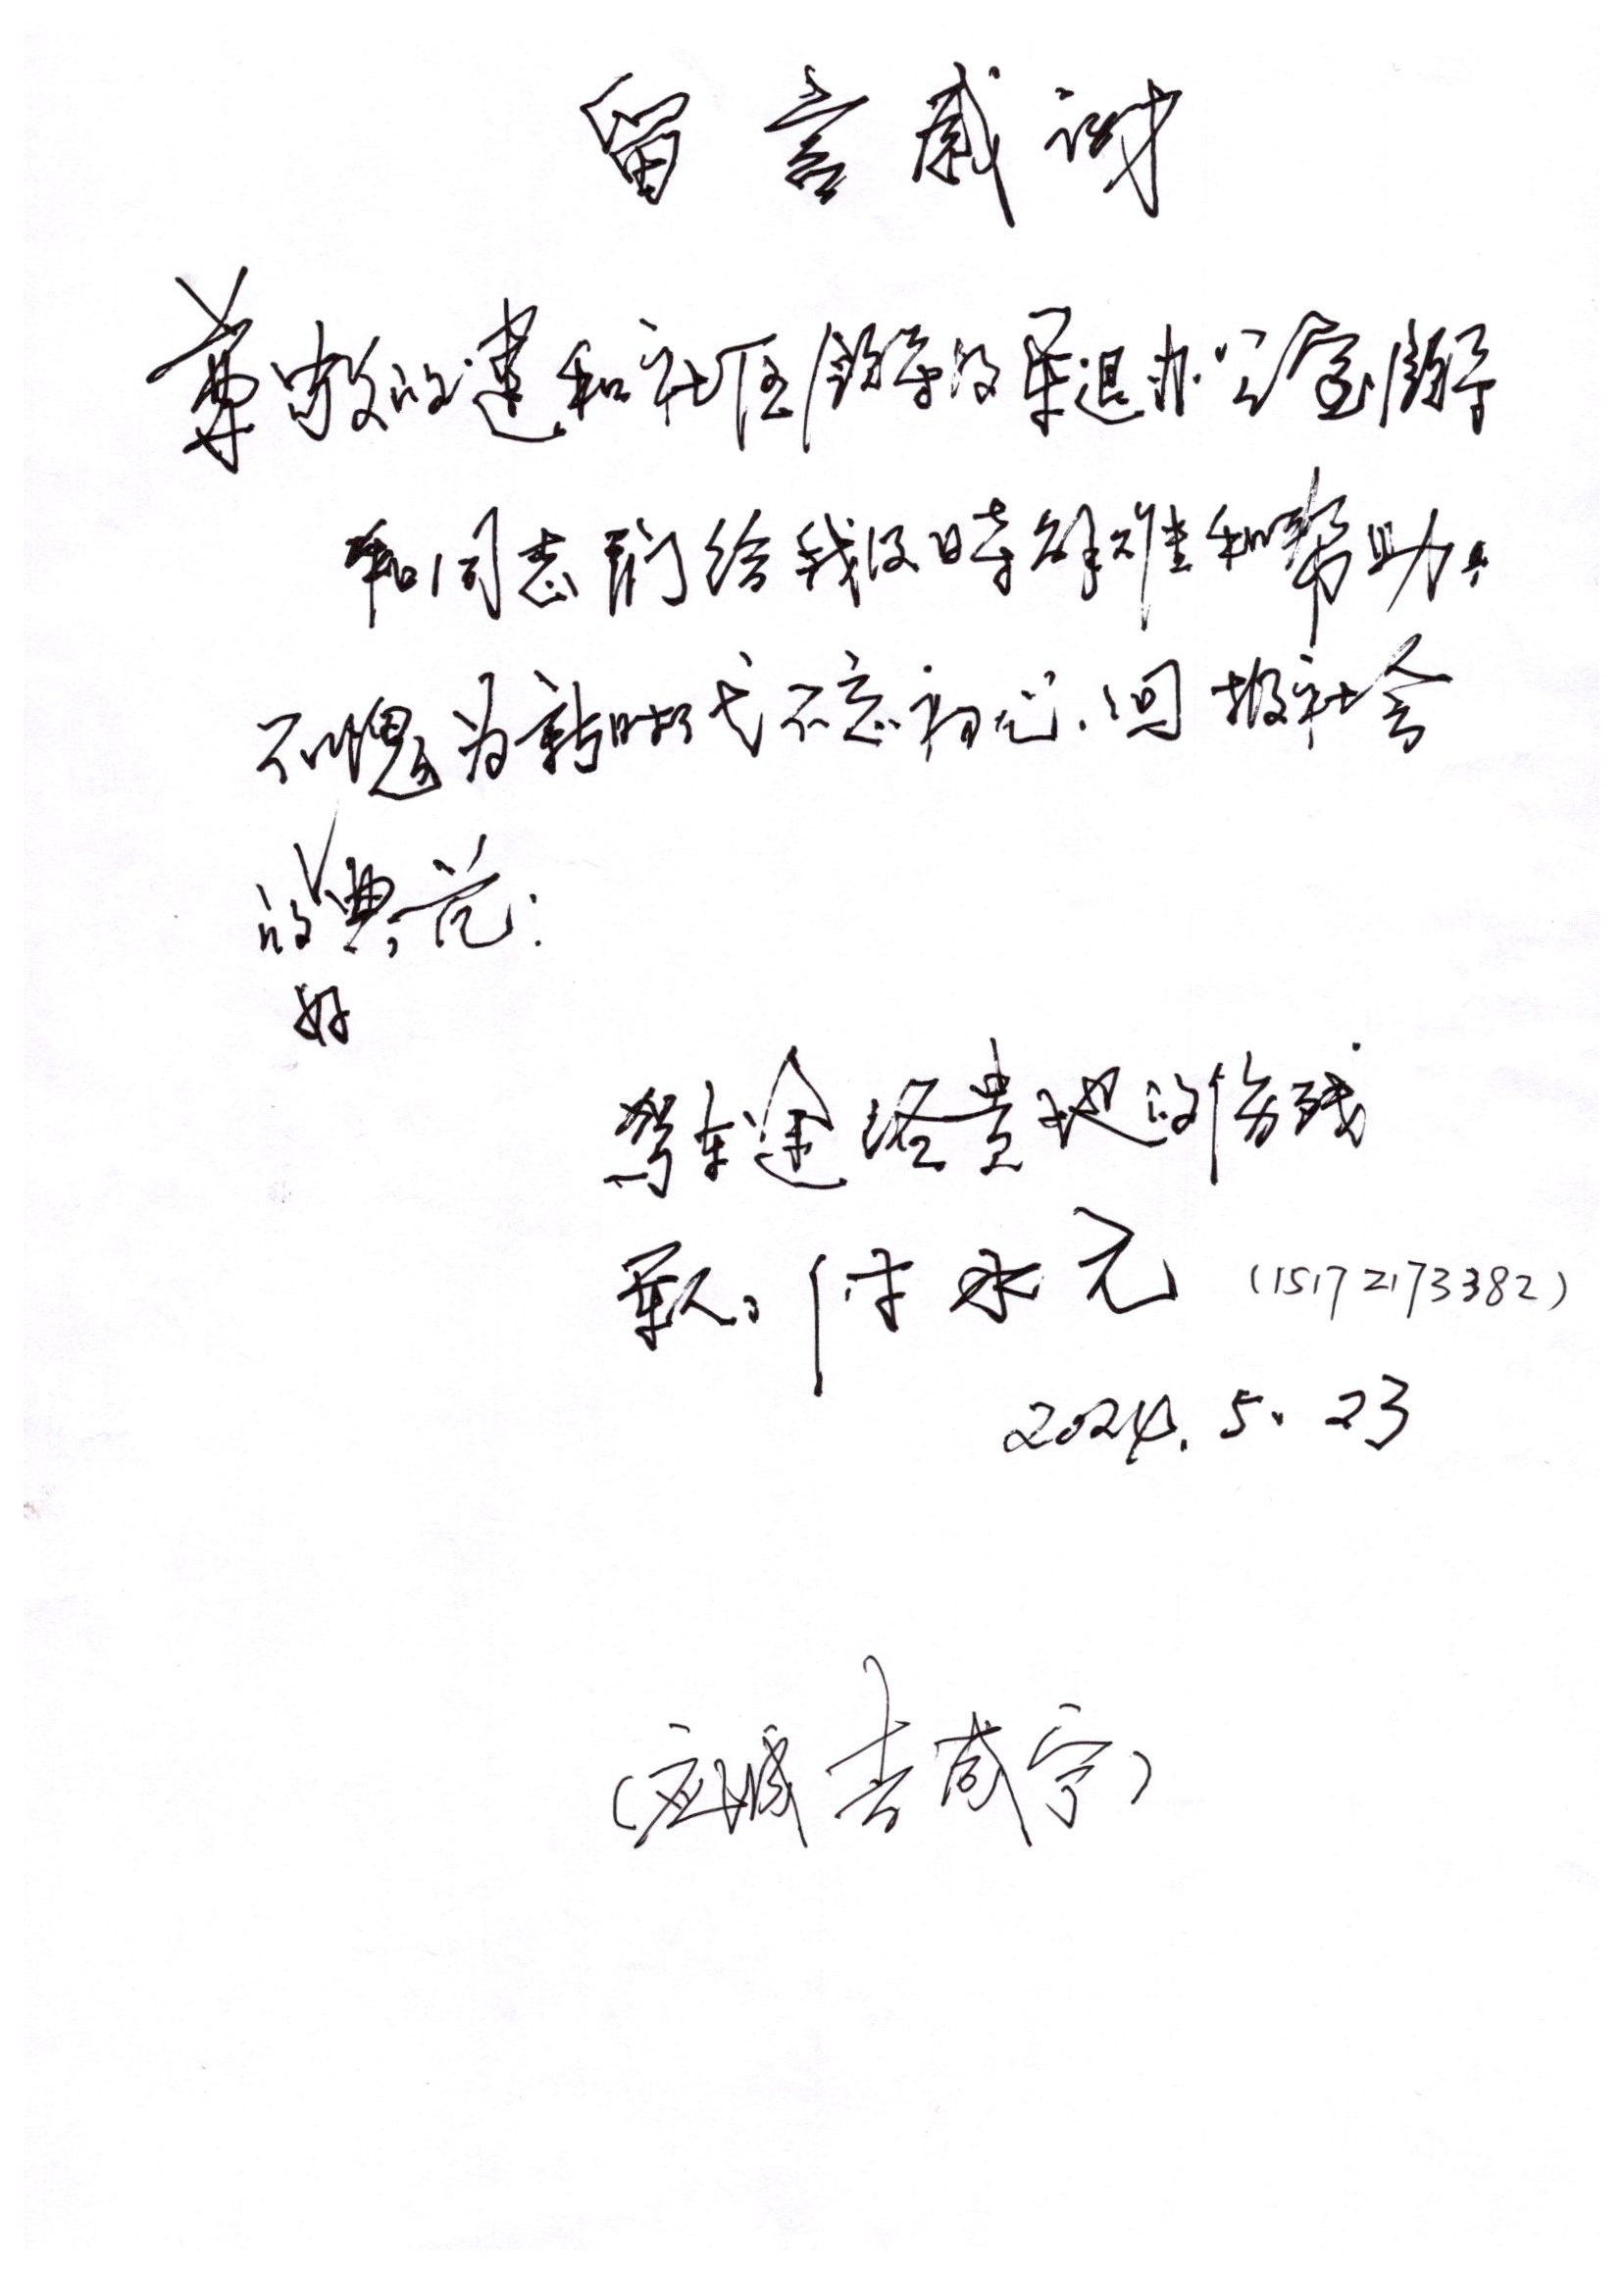 留言感谢
尊敬的建和社区领导及军退办公室领导
和同志们给我及时解难和帮助.
不愧为新时代不忘初心、回报社会
的典范:
好
驾车途径贵地的伤残
军人: 付永元 (15172173382)
2024.5.23
(应城 去咸宁)